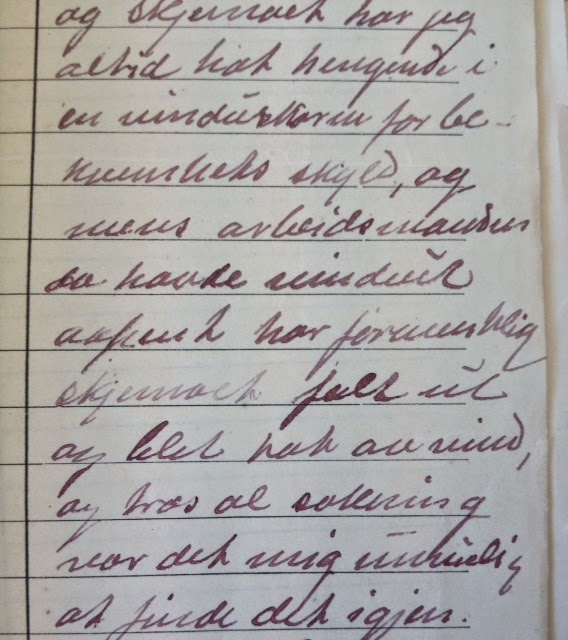 og skjemaet har jeg
altid hat hengende i
en vinduskarm for be-
kvemhets skyld, og
mens arbeidsmanden
da havde vinduet
aapent har formentlig
skjemaet falt ut
og blit tat av vind,
og tros al sökning
var det mig umulig
at finde det igjen.